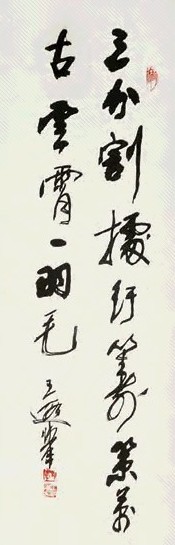 三分割據紆籌策萬
古雲霄一羽毛
王遐舉